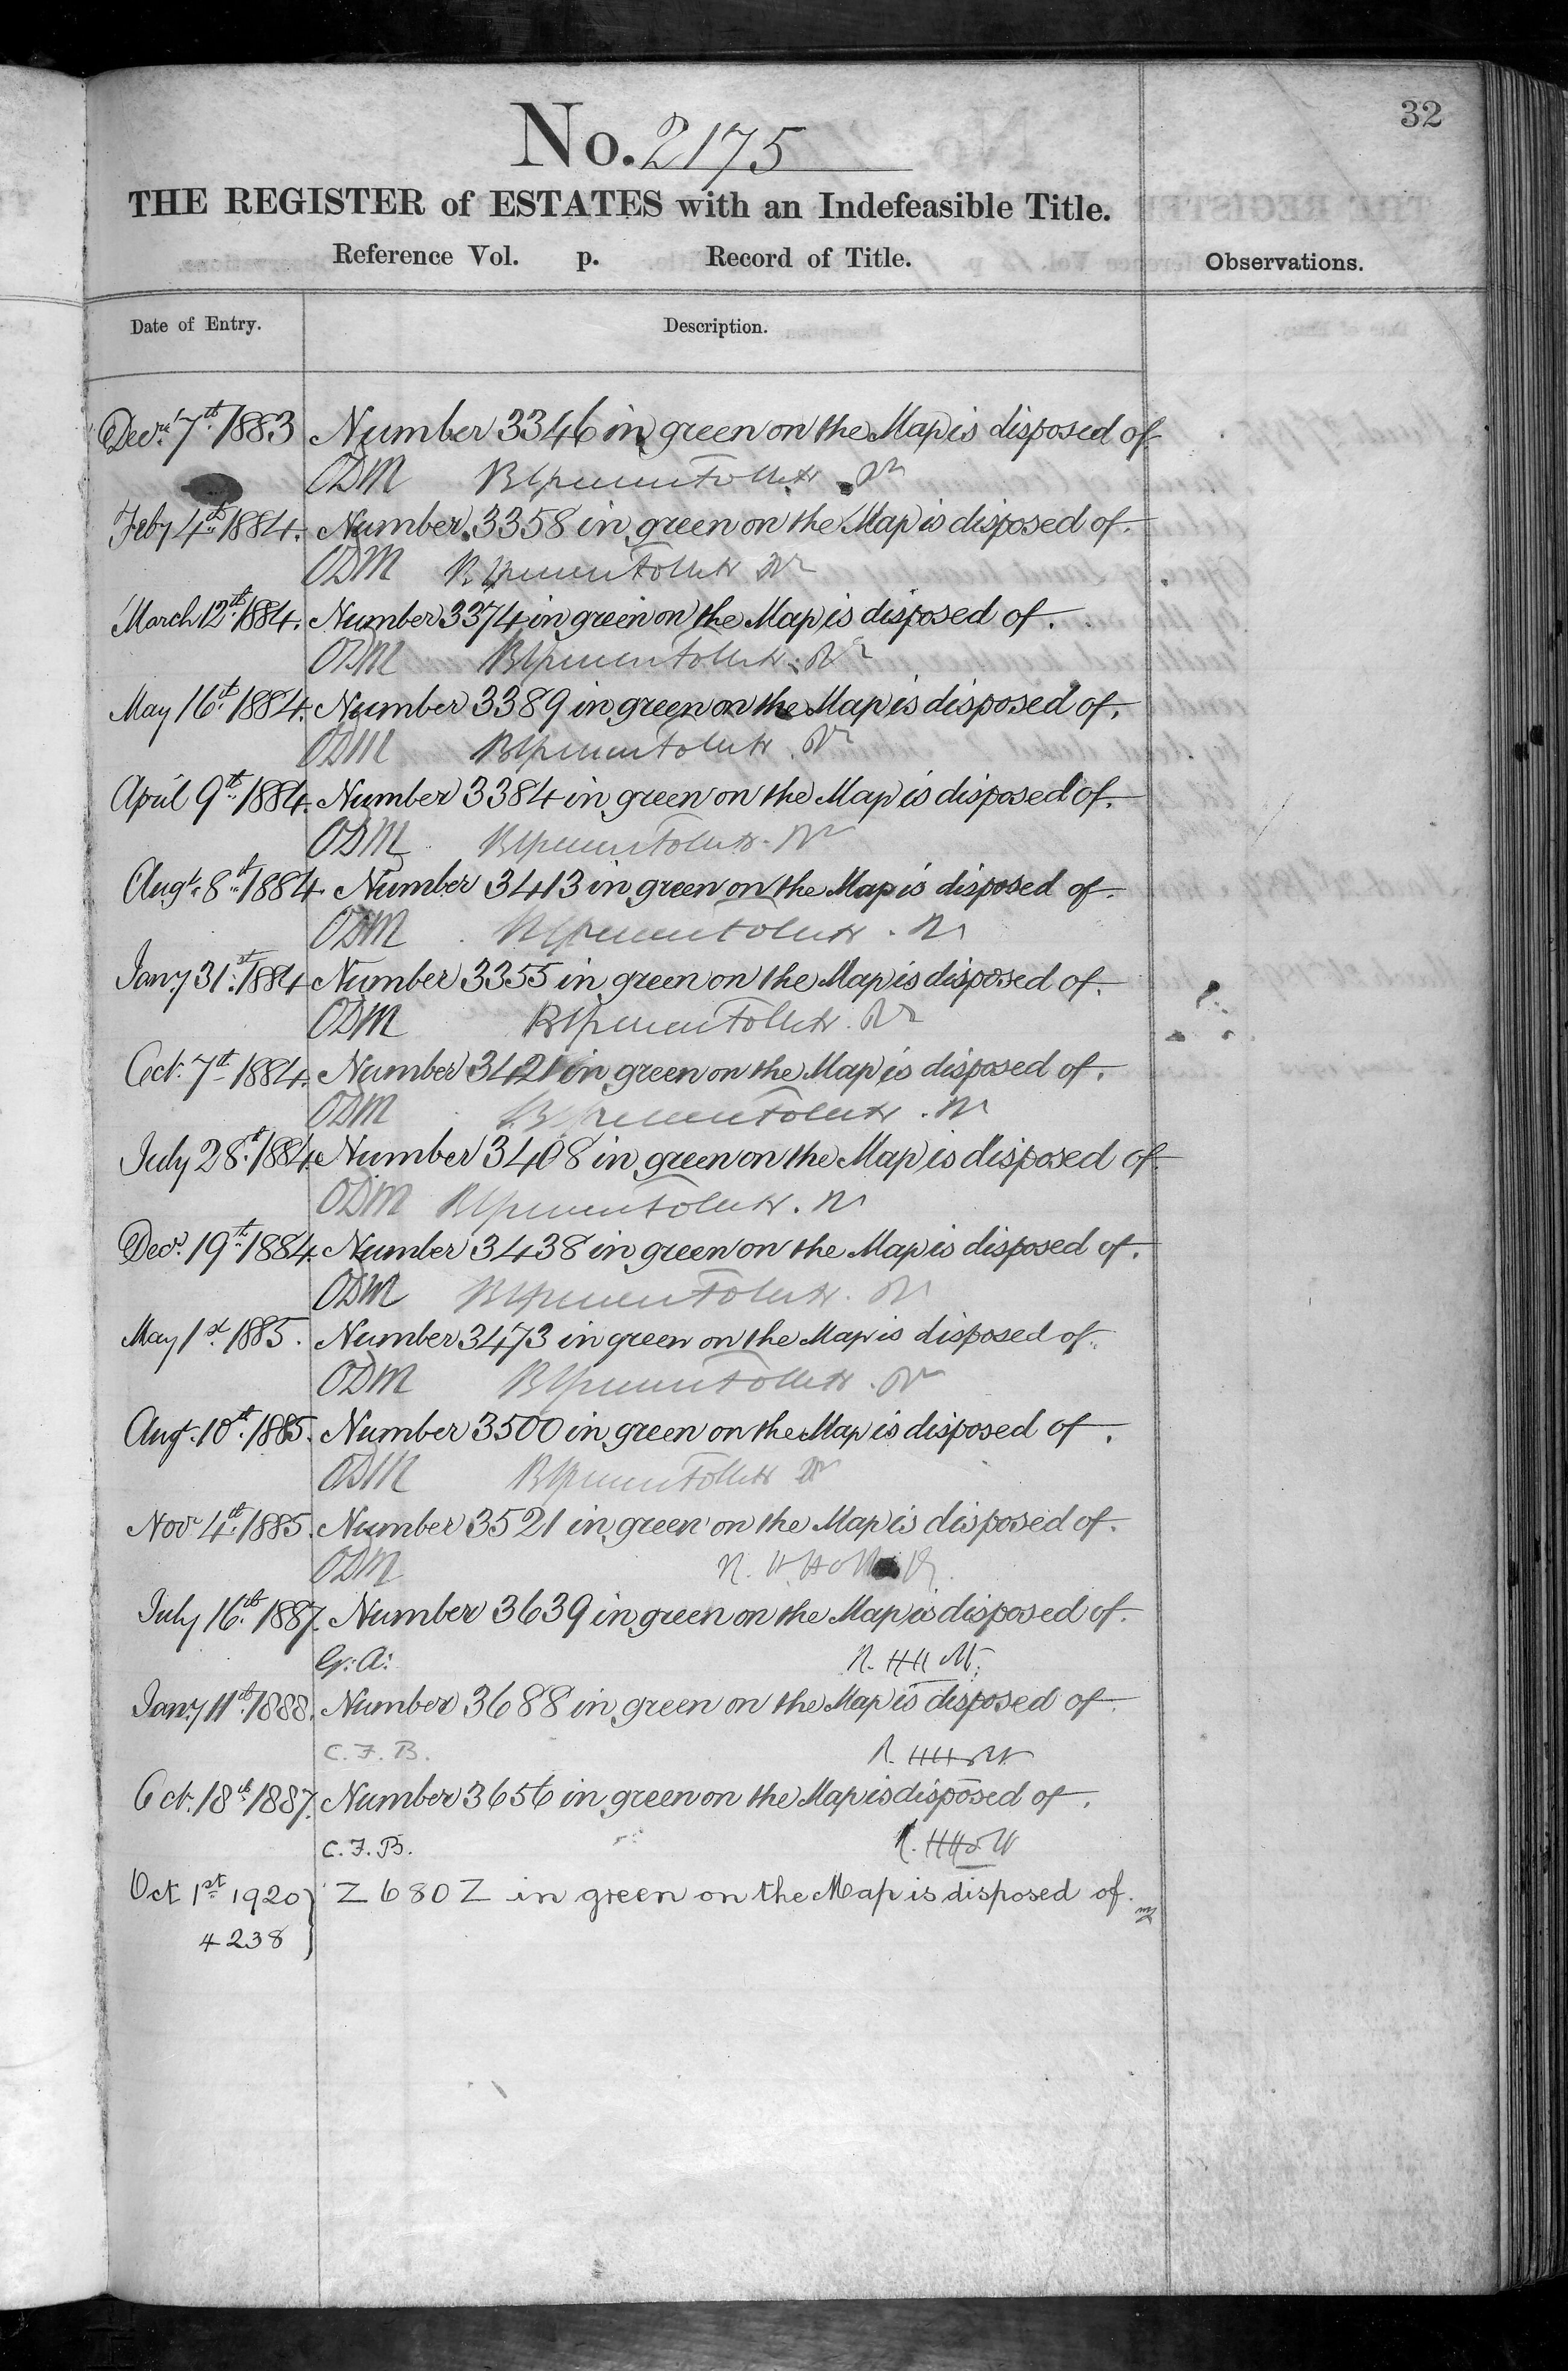 32
No. 2175
THE REGISTER of ESTATES with an Indefeasible Title.
Reference Vol. p. Record of Title.
Observations.
Date of Entry. Description.
Decr. 7th 1883 Number 3346 in green on the Map is disposed of
ODM
Feby 4th 1884. Number 3358 in green on the Map is disposed of.
ODM
March 12th 1884. Number 3374 in green on the Map is disposed of.
ODM
May 16th 1884. Number 3389 in green on the Map is disposed of.
ODM
April 9th 1884. Number 3384 in green on the Map is disposed of.
ODM
Augt. 8th 1884 Number 3413 in green on the Map is disposed of.
ODM
Jany 31st 1884 Number 3355 in green on the Map is disposed of.
ODM
Oct. 7th 1884. Number 3421 in green on the Map is disposed of.
ODM
July 28th 1884. Number 3408 in green on the Map is disposed of.
ODM
Decr. 19th 1884. Number 3438 in green on the Map is disposed of.
ODM
May 1st 1885. Number 3473 in green on the Map is disposed of.
ODM
Augt. 10th 1885. Number 3500 in green on the Map is disposed of.
ODM
Novr 4th 1885. Number 3521 in green on the Map is disposed of.
ODM
July 16th 1887. Number 3639 in green on the Map is disposed of.
G. A.
Jany 11th 1888. Number 3688 in green on the Map is disposed of.
C. F. B.
Oct. 18th 1887. Number 3656 in green on the Map is disposed of.
C. F. B.
Oct 1st 1920 Z 680 Z in green on the Map is disposed of.
4238